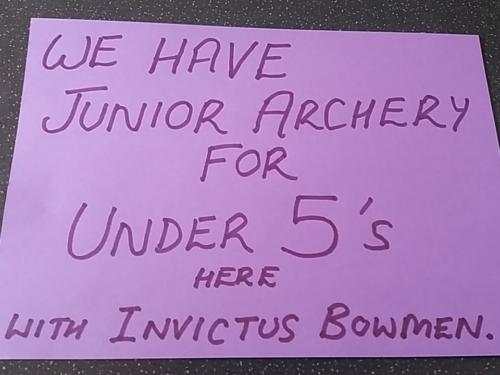 WE HAVE
JUNIOR ARCHERY
FOR
UNDER 5's
HERE
WITH INVICTUS BOWMEN.